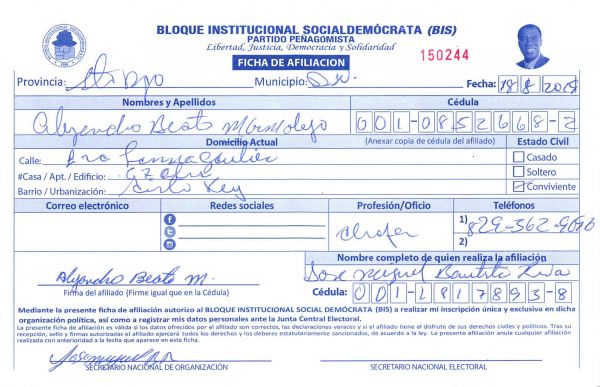 BLOQUE INSTITUCIONAL SOCIALDEMÓCRATA (BIS)
PARTIDO PEÑAGOMISTA
Libertad, Justicia, Democracia y Solidaridad
FICHA DE AFILIACION
150244
Provincia: Sto Dgo Municipio: D.N. Fecha: 18/8/2019
Nombres y Apellidos Cédula
Alejandro Beato Marmolejo 001-0852668-2
Domicilio Actual (Anexar copia de cédula del afiliado) Estado Civil
Calle:
#Casa / Apt. / Edificio:
Barrio / Urbanización:
Casado
Soltero
Conviviente
Correo electrónico Redes sociales Profesión/Oficio Teléfonos
Chofer
1) 829-562-9090
2)
Nombre completo de quien realiza la afiliación
Jose Miguel Bautista
Alejandro Beato M.
Cédula: 001-1817893-8
Firma del afiliado (Firme igual que en la Cédula)
Mediante la presente ficha de afiliación autorizo al BLOQUE INSTITUCIONAL SOCIAL DEMÓCRATA (BIS) a realizar mi inscripción única y exclusiva en dicha
organización política, así como a registrar mis datos personales ante la Junta Central Electoral.
La presente ficha de afiliación es válida si los datos ofrecidos por el afiliado son correctos, las declaraciones veraces y si el afiliado tiene el disfrute de sus derechos civiles y políticos. Tras su
recepción, sello y firmas autorizadas el afiliado ejercerá todos los derechos y los deberes estatutariamente sancionados, de acuerdo a la ley. La presente afiliación anula cualquier afiliación
realizada con anterioridad a la fecha que aparece en esta ficha.
SECRETARIO NACIONAL DE ORGANIZACIÓN SECRETARIO NACIONAL ELECTORAL